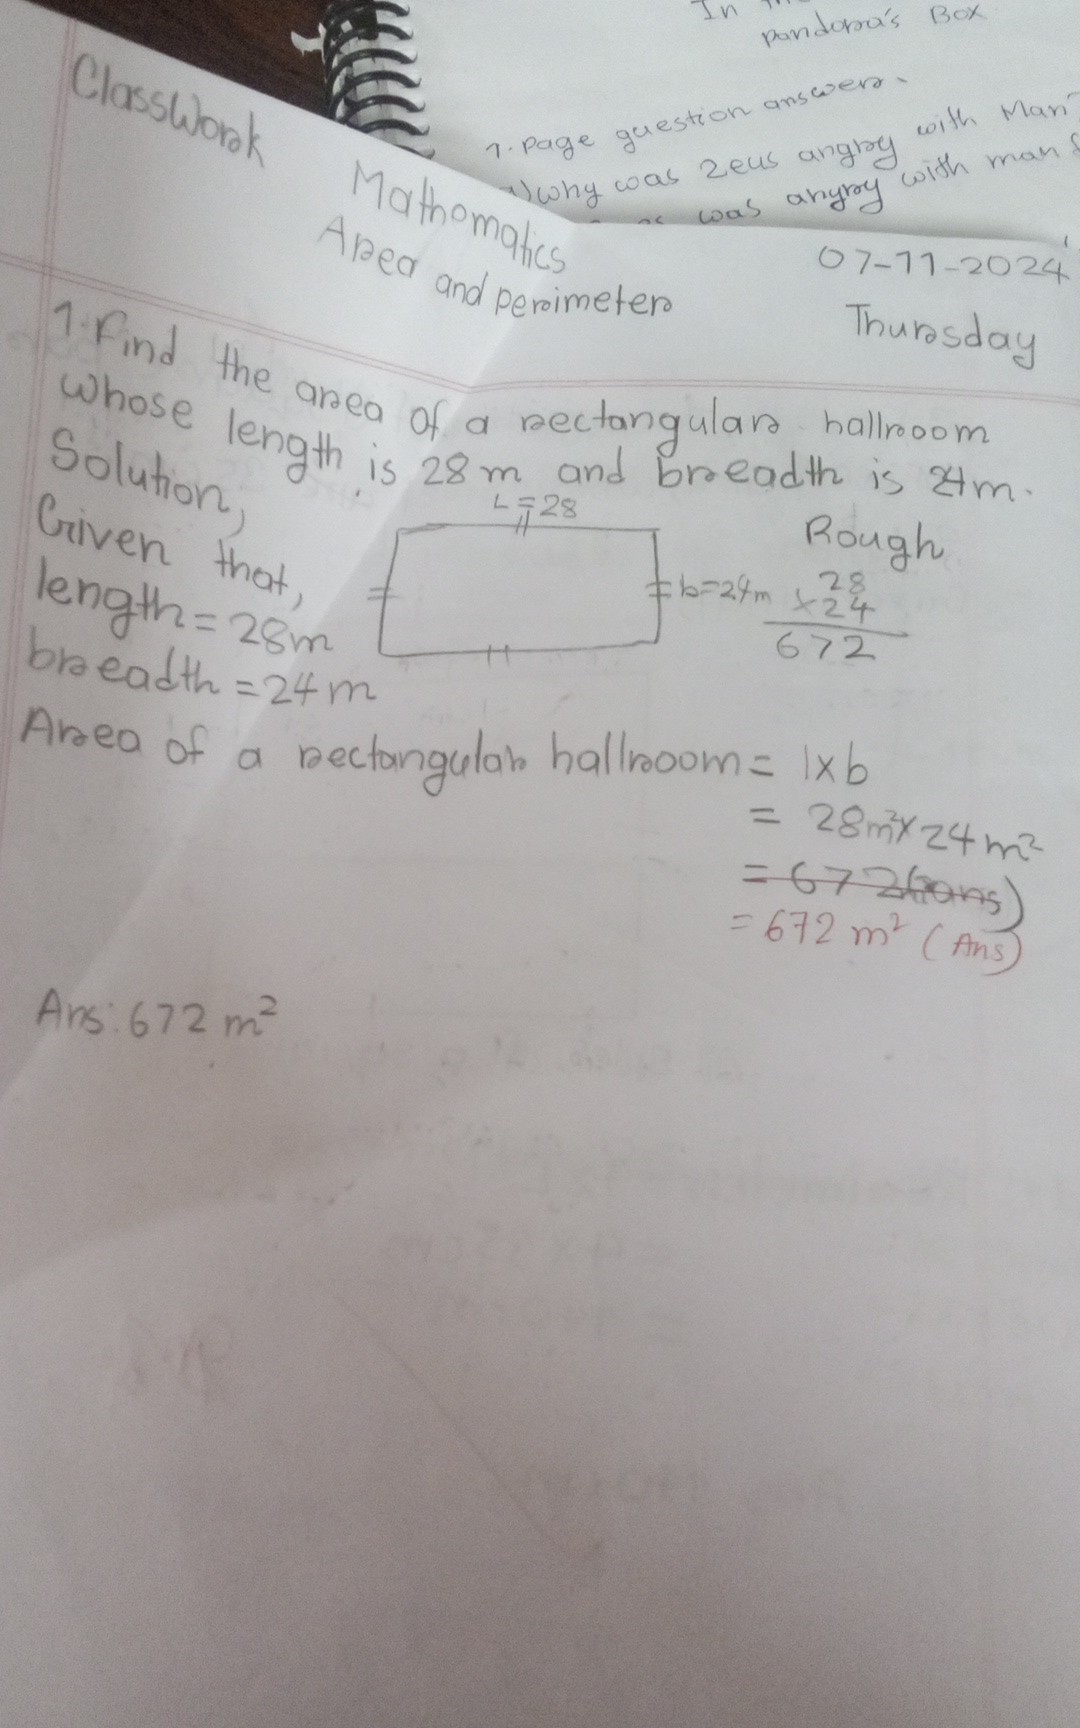 In
pandora's Box
1. Page question answers.
why was Zeus angry with Man?
was angry with man
ClassWork
Mathomatics
Area and perimeter
07-11-2024
Thursday
1. Find the area of a rectangular hallroom
whose length is 28m and breadth is 24m.
Solution,
Given that,
length = 28m
breadth = 24m
L = 28
b=24m
Rough
28
×24
672
Area of a rectangular hallroom = l×b
= 28m²×24m²
= 672(ans)
= 672 m² (Ans)
Ans: 672 m²